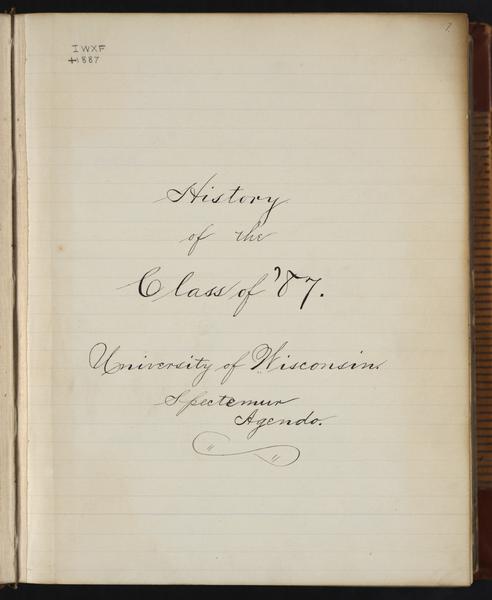 1
IWXF
+1887
History
of the
Class of '87.
University of Wisconsin.
Spectemur
Agendo.